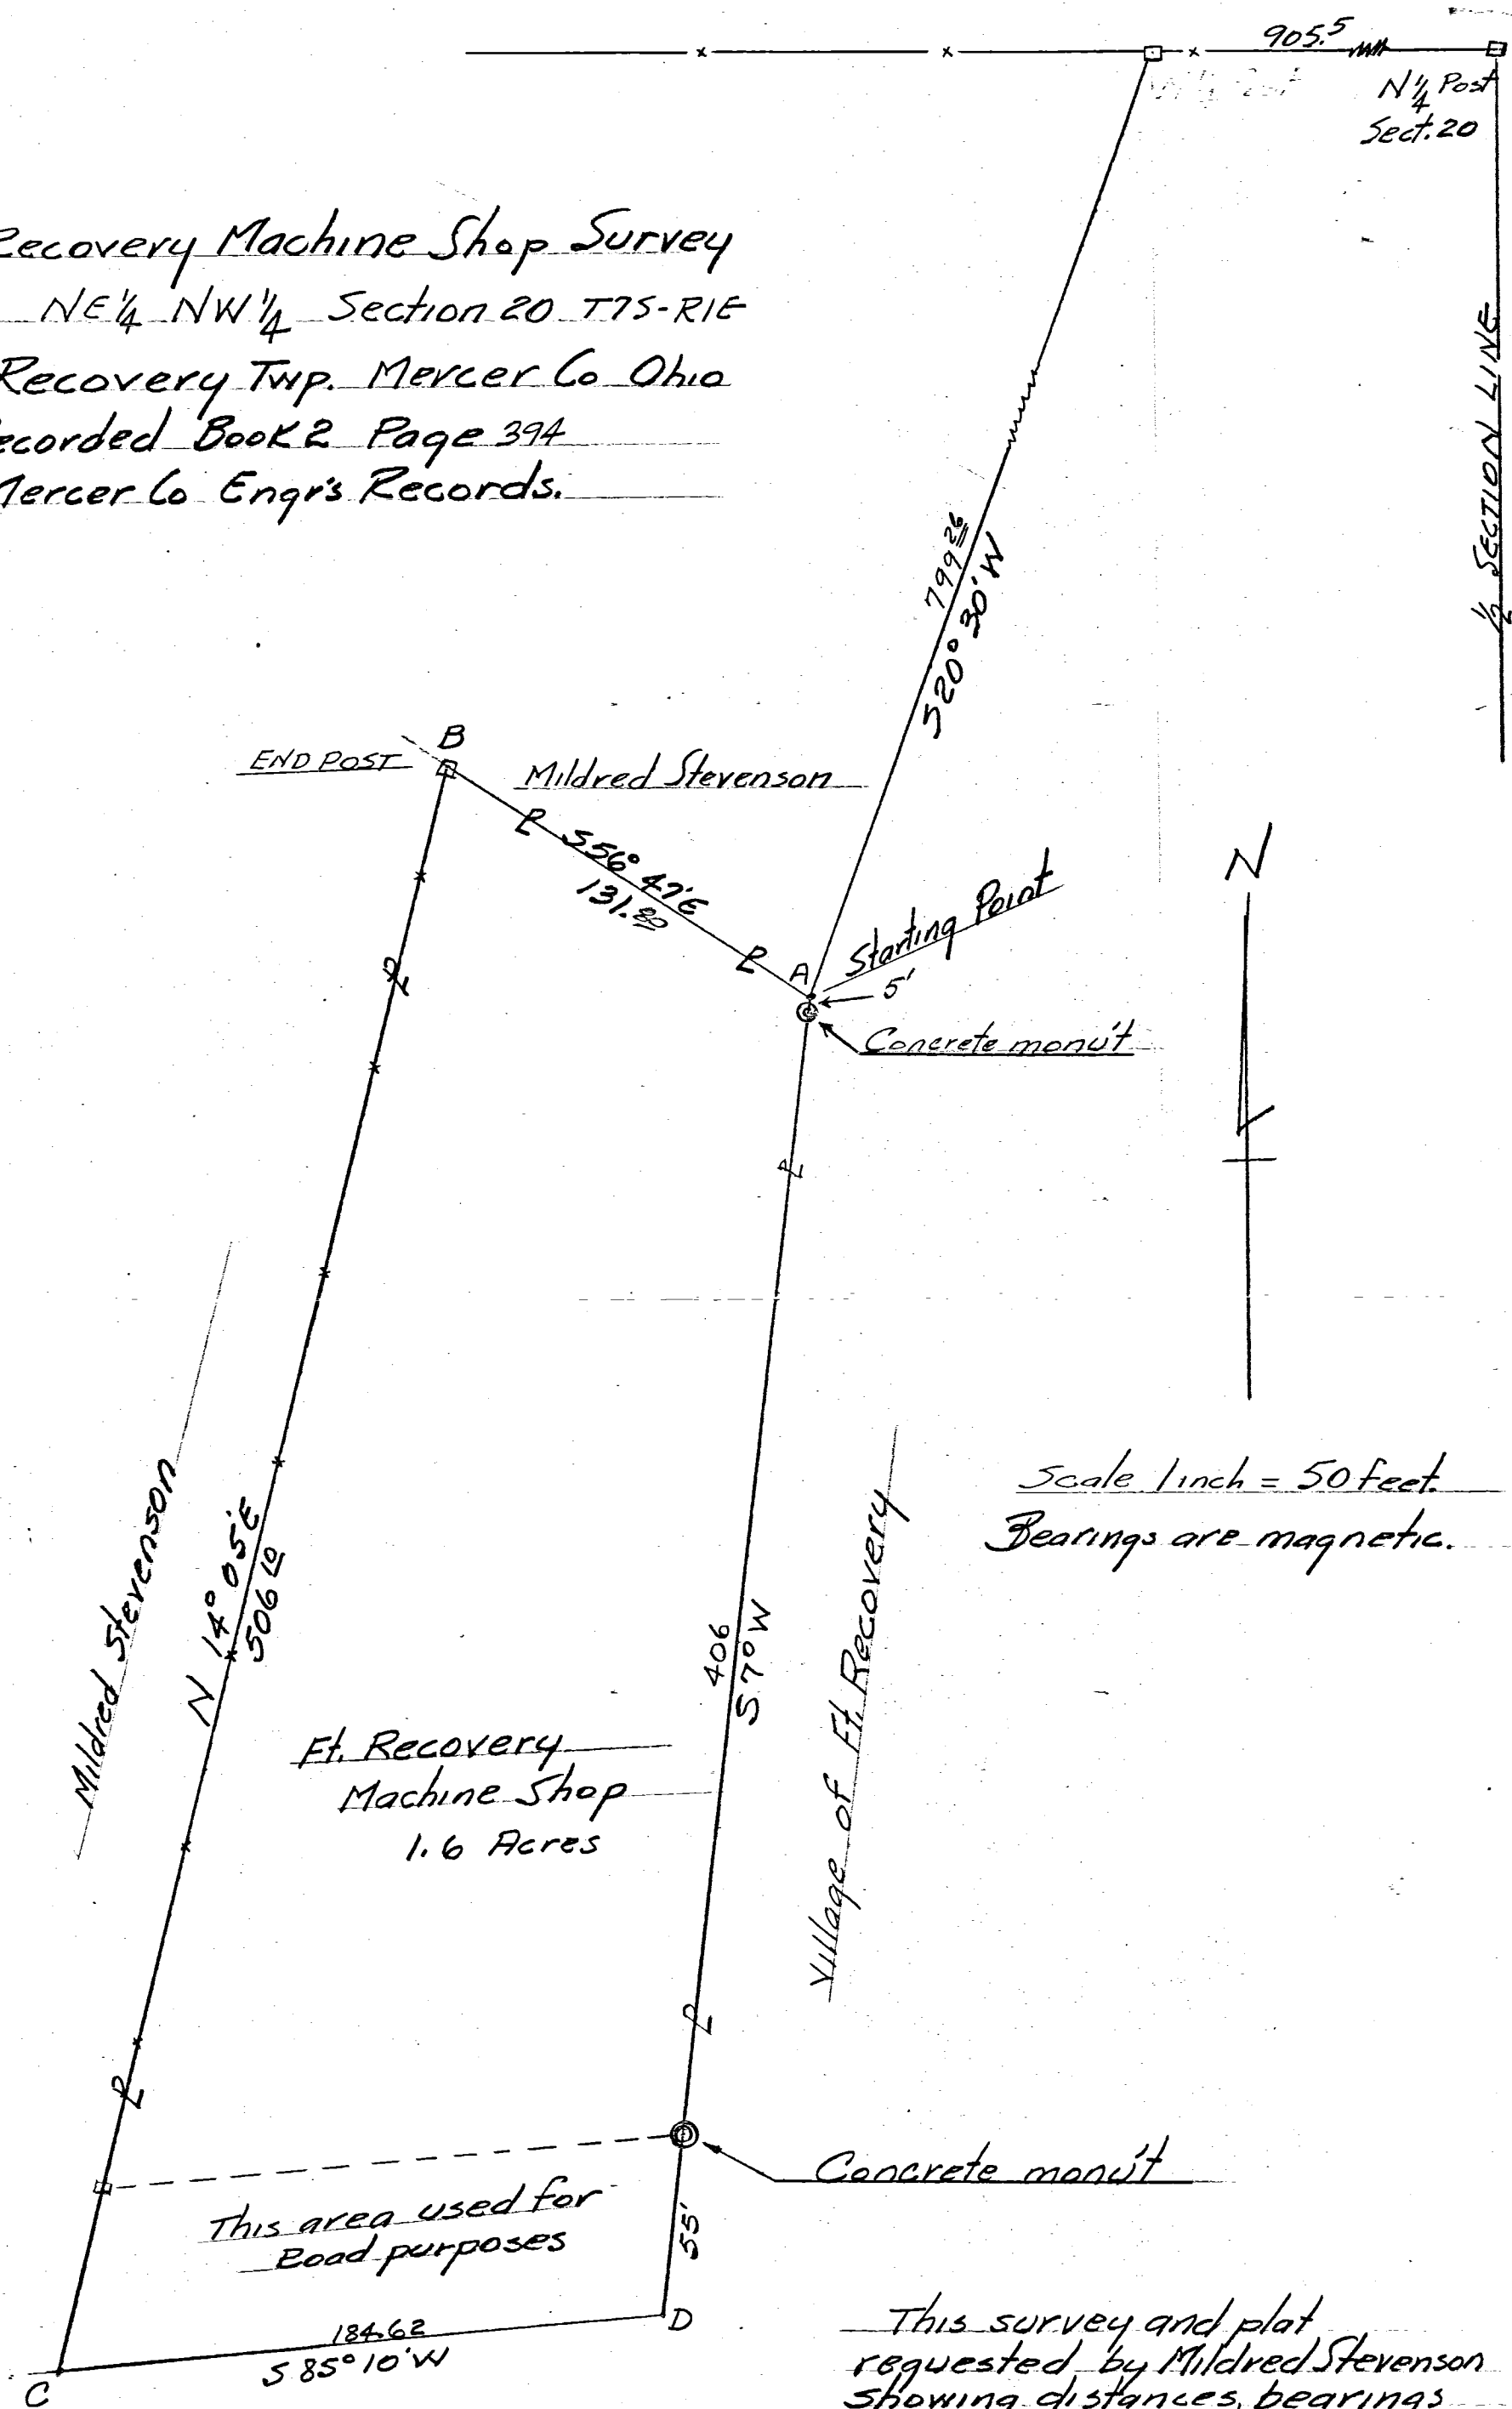 905.5
N 1/4 Post
Sect. 20
Recovery Machine Shop Survey
NE 1/4 NW 1/4 Section 20 T7S-R1E
Recovery Twp. Mercer Co Ohio
Recorded Book 2 Page 394
Mercer Co Engr's Records.
1/2 SECTION LINE
799.26
S20° 30' W
B
END POST
Mildred Stevenson
S56° 47' E
131.80
N
A
Starting Point
5'
Concrete monu't
Mildred Stevenson
N 14° 05' E
506.10
406
S 7° W
Village of Ft. Recovery
Scale 1 inch = 50 feet.
Bearings are magnetic.
Ft. Recovery
Machine Shop
1.6 Acres
Concrete monu't
This area used for
Road purposes
55'
184.62
S 85° 10' W
D
C
This survey and plat
requested by Mildred Stevenson
showing distances, bearings